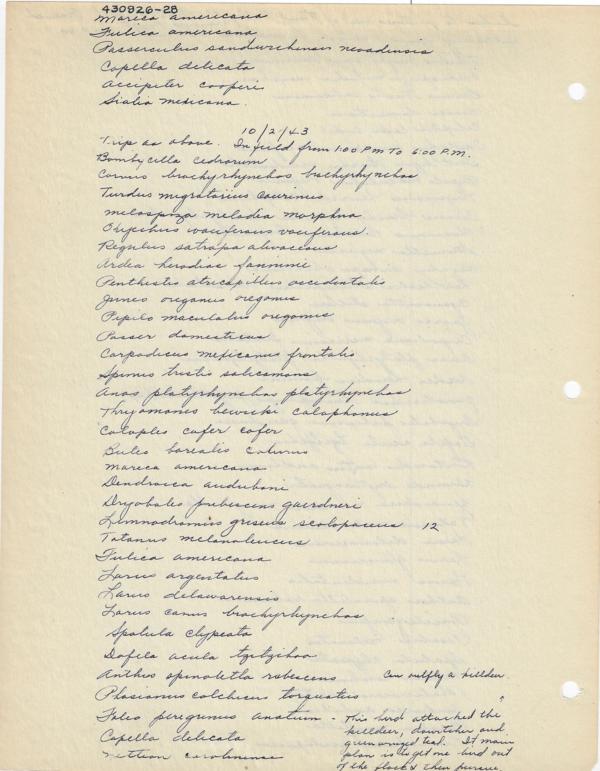 430926-28
Mareca americana
Fulica americana
Passerculus sandwichensis nevadensis
Capella delicata
Accipiter cooperi
Sialia mexicana.
10/2/43
Trip as above. In field from 1:00 P.M. To 6:00 P.M.
Bombycilla cedrorum
Corvus brachyrhynchos brachyrhynchos
Turdus migratorius caurinus
Melospiza melodia morphna
Oxyechus vociferus vociferous.
Regulus satrapa olivaceous
Ardea herodias fannini
Penthestes atricapillus occidentalis
Junco oreganus oreganus
Pipilo maculatus oregonus
Passer domesticus
Carpodacus mexicanus frontalis
Spinus tristis salicamans
Anas platyrhynchos platyrhynchos
Thryomanes bewicki calophonus
Colaptes cafer cafer
Buteo borealis calurus
Mareca americana
Dendroica auduboni
Dryobates pubescens gairdneri
Limnodromus griseus scolopaceus 12
Totanus melanoleucus
Fulica americana
Larus argentatus
Larus delawarensis
Larus canus brachyrhynchos
Spatula clypeata
Dafila acuta tzitzihoa
Anthus spinoletta rubescens Can outfly a killdeer
Phasianus colchicus torquatus "
Falco peregrinus anatum - This bird attacked the
Capella delicata killdeer, dowitcher and
Nettion carolinense green winged teal. Its main
plan is to get one bird out
of the flock & then pursue